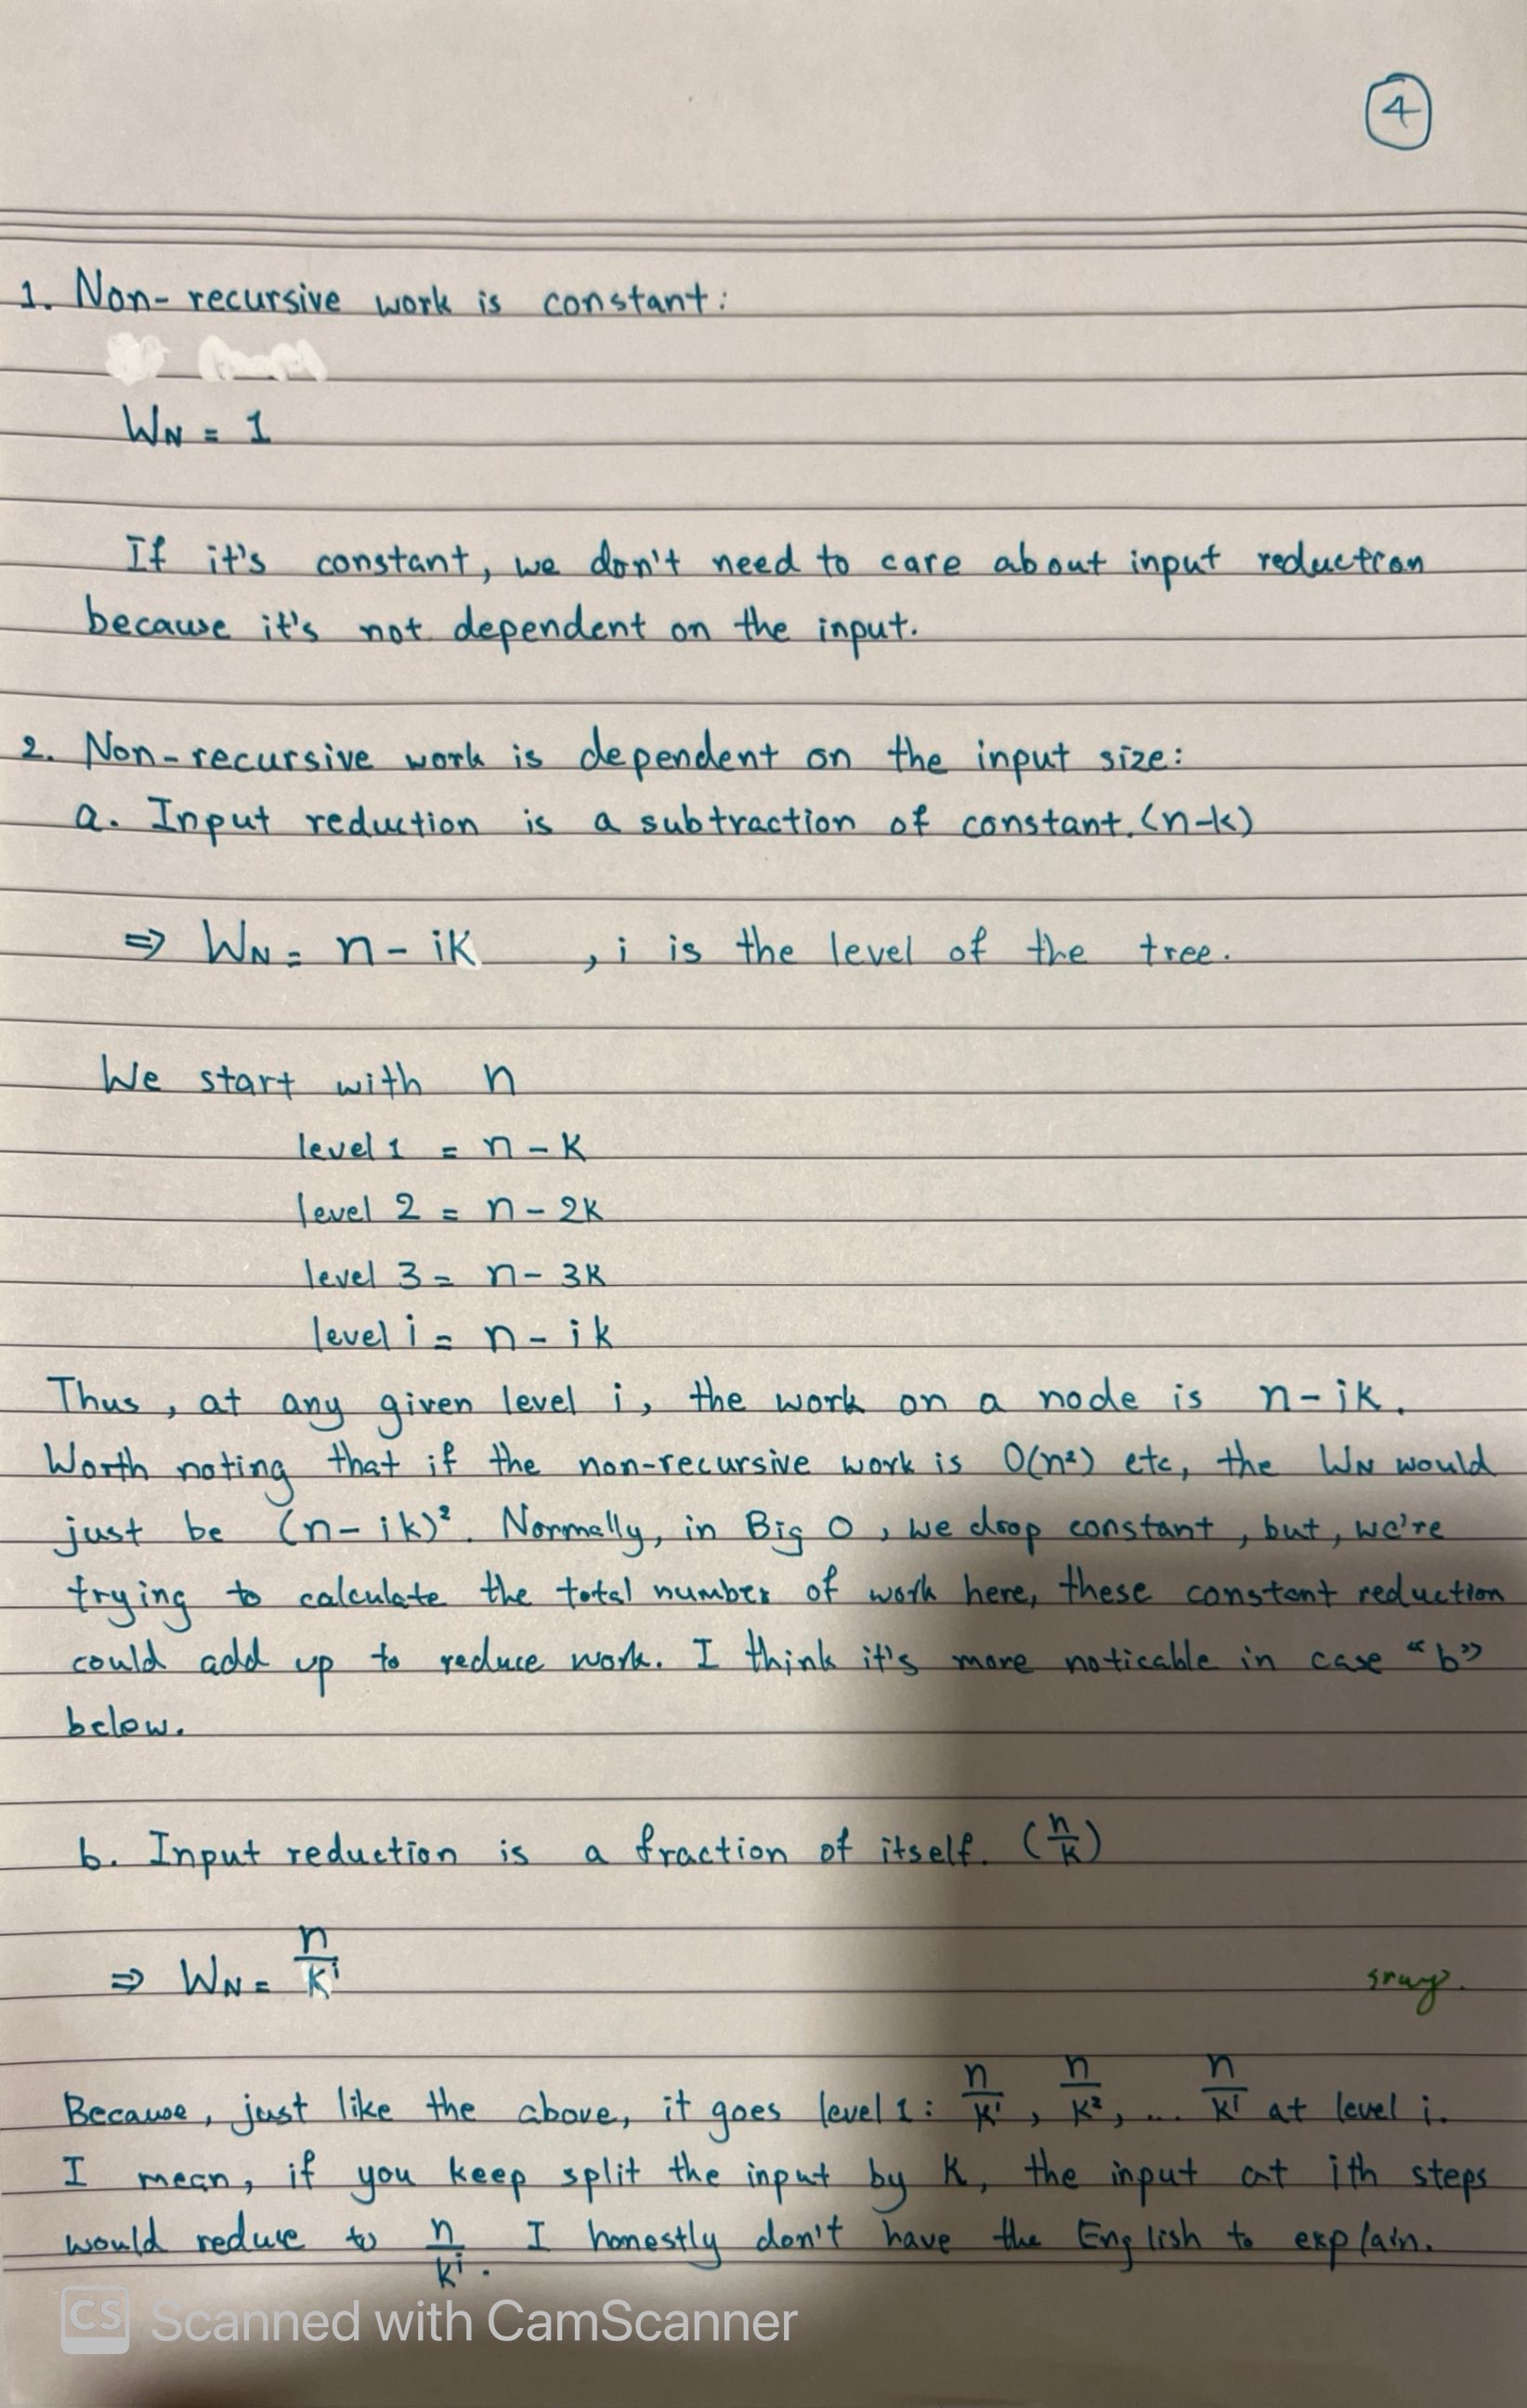 4
1. Non-recursive work is constant:
W_N = 1
If it's constant, we don't need to care about input reduction
because it's not dependent on the input.
2. Non-recursive work is dependent on the input size:
a. Input reduction is a subtraction of constant. (n-k)
⇒ W_N = n - ik , i is the level of the tree.
We start with n
level 1 = n - k
level 2 = n - 2k
level 3 = n - 3k
level i = n - ik
Thus, at any given level i, the work on a node is n - ik.
Worth noting that if the non-recursive work is O(n²) etc, the W_N would
just be (n - ik)². Normally, in Big O, we drop constant, but, we're
trying to calculate the total number of work here, these constant reduction
could add up to reduce work. I think it's more noticable in case "b"
below.
b. Input reduction is a fraction of itself. (n/k)
⇒ W_N = n/k^i
Because, just like the above, it goes level 1: n/k¹, n/k², ... n/k^i at level i.
I mean, if you keep split the input by k, the input at ith steps
would reduce to n/k^i. I honestly don't have the English to explain.
CS Scanned with CamScanner